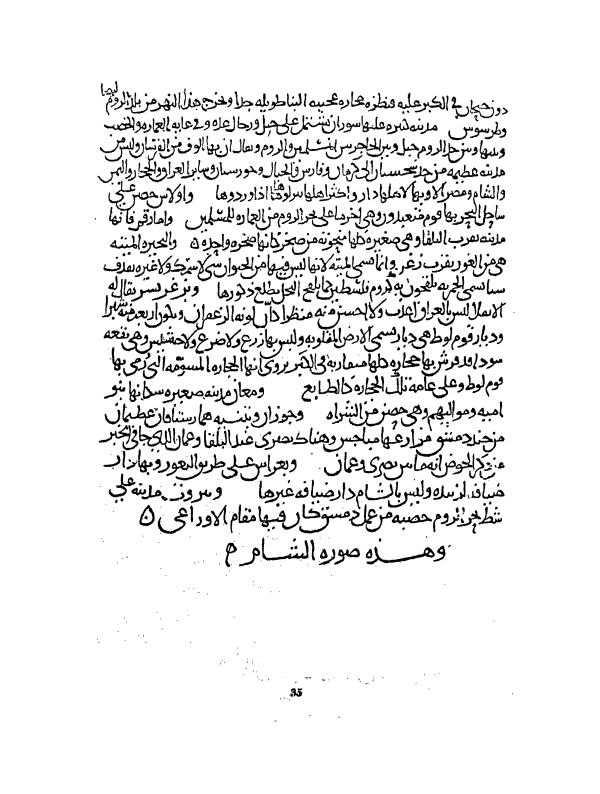 دون جيحان في الكبر عليه قنطره حجاره عجيبه البنا طويله جدا ويخرج هذا النهر من بلد الروم ايضا
وطرسوس مدينه كبيره عليها سوران تشتمل على خيل ورجال وعده وهي في غايه العماره والخصب
وبينها وبين حد الروم جبل وهو الحاجز بين المسلمين والروم ويقال ان بها الوف من الفرسان وليس من
مدينه عظيمه من حد سجستان الى كرمان وفارس والجبال وخورستان وساير العراق والحجاز واليمن
والشام ومصر الا وبها لاهلها دار واكثر اهلها ينزلونها اذا وردوها واولاس حصن على
ساحل البحر بها قوم متعبدون وهي اخر ما على بحر الروم من العماره للمسلمين واما رقيم فانها
مدينه بقرب البلقا وهي صغيره كلها منحوته من صخر كانها صخره واحده والبحيره الميته
هي من الغور بقرب زغر وانما تسمى الميته لانها ليس فيها من الحيوان شي لا سمك ولا غيره يقذف
شيا يسمى الحمريه يلقحون به كروم فلسطين كما يلقح النخل بطلع ذكورها وبزغر بسر يقال له
الانقلا ليس بالعراق اعذب ولا احسن منه منظرا كان لونه الزعفران ويكون اربعه منه شبرا
وديار قوم لوط هي ديار تسمى الارض المقلوبه وليس بها زرع ولا ضرع ولا حشيش وهي بقعه
سودا قد فرش بها حجاره كلها متقاربه في الكبر يروى انها الحجاره المسومه التي رمي بها
قوم لوط وعلى عامه تلك الحجاره كالطابع ومعان مدينه صغيره سكانها بنو
اميه ومواليهم وهي حصن من الشراه وحوران والبثنيه هما رستاقان عظيمان
من جند دمشق مزارعها مباخس وهناك بصرى عند البلقا وعمان التي جا في الخبر
من ذكر الحوض انه ما بين بصرى وعمان وبغراس على طريق الثغور وبها دار
ضيافه لزبيده وليس بالشام دار ضيافه غيرها وبيروت مدينه على
شط بحر الروم خصبه من عمل دمشق كان فيها مقام الاوزاعي
وهذه صوره الشام
35